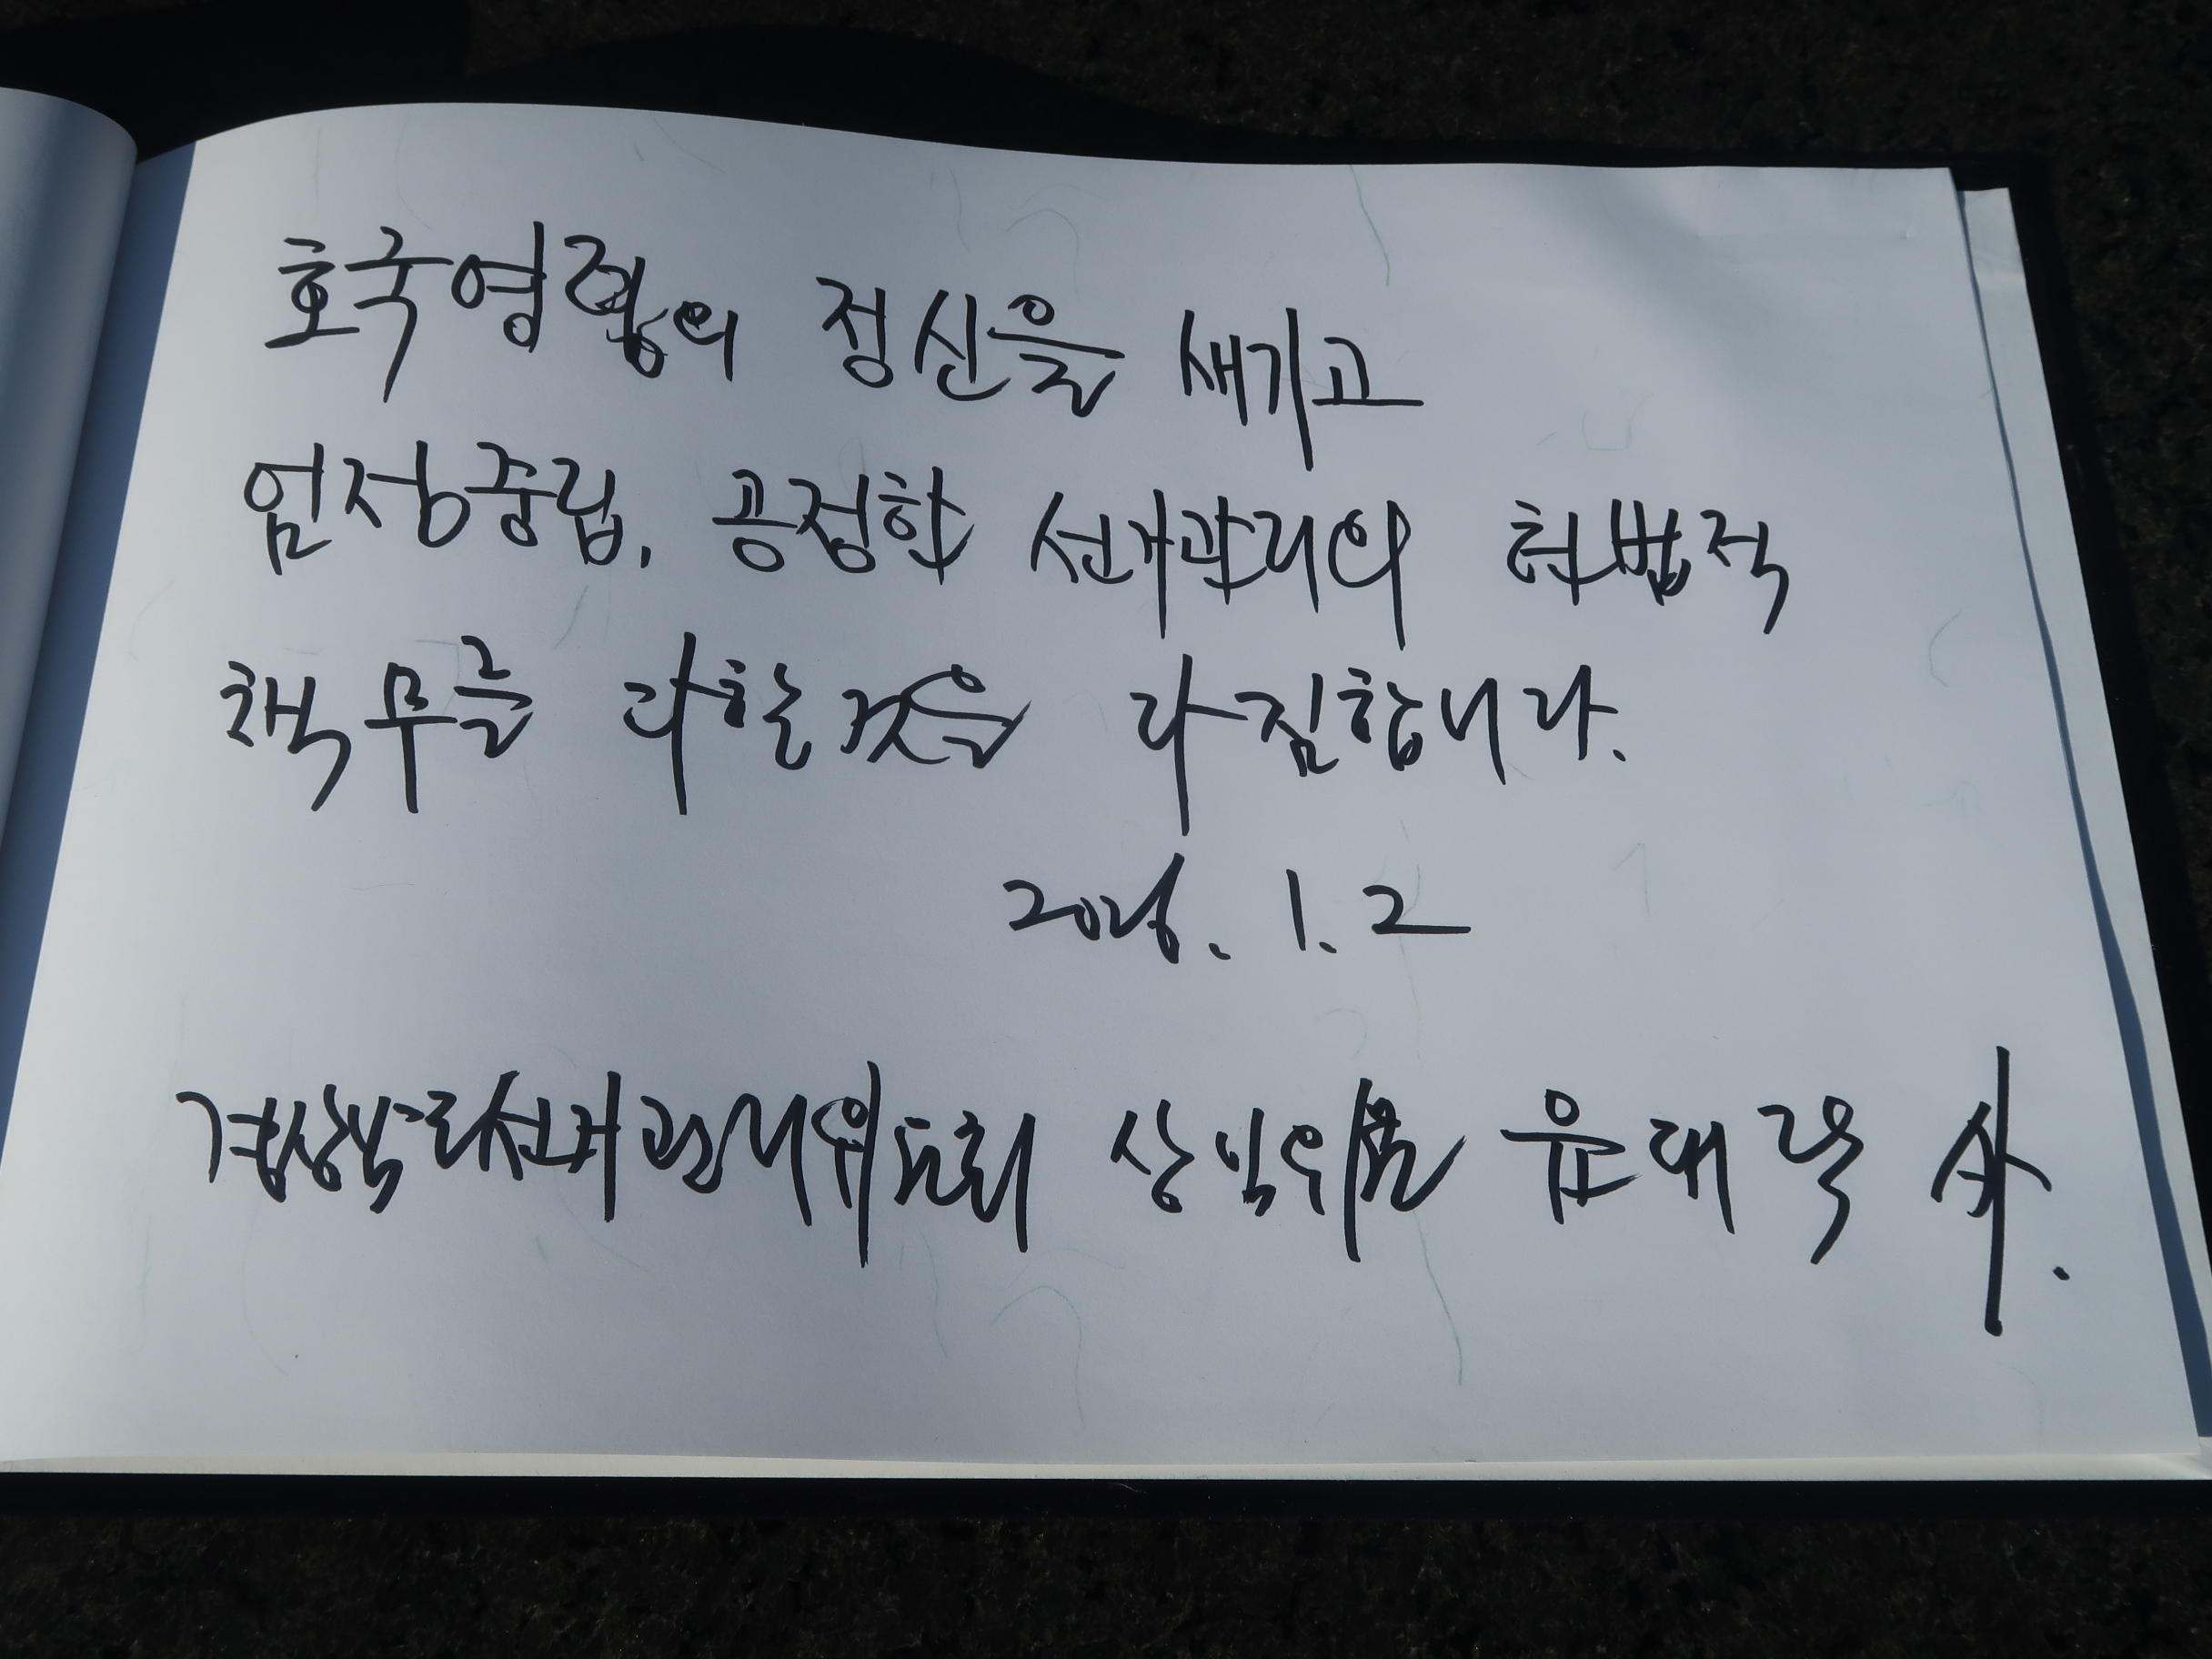 호국영령의 정신을 새기고
엄정중립, 공정한 선거관리의 헌법적
책무를 다할것을 다짐합니다.
2026. 1. 2
경상북도선거관리위원회 상임위원 윤대락 사.